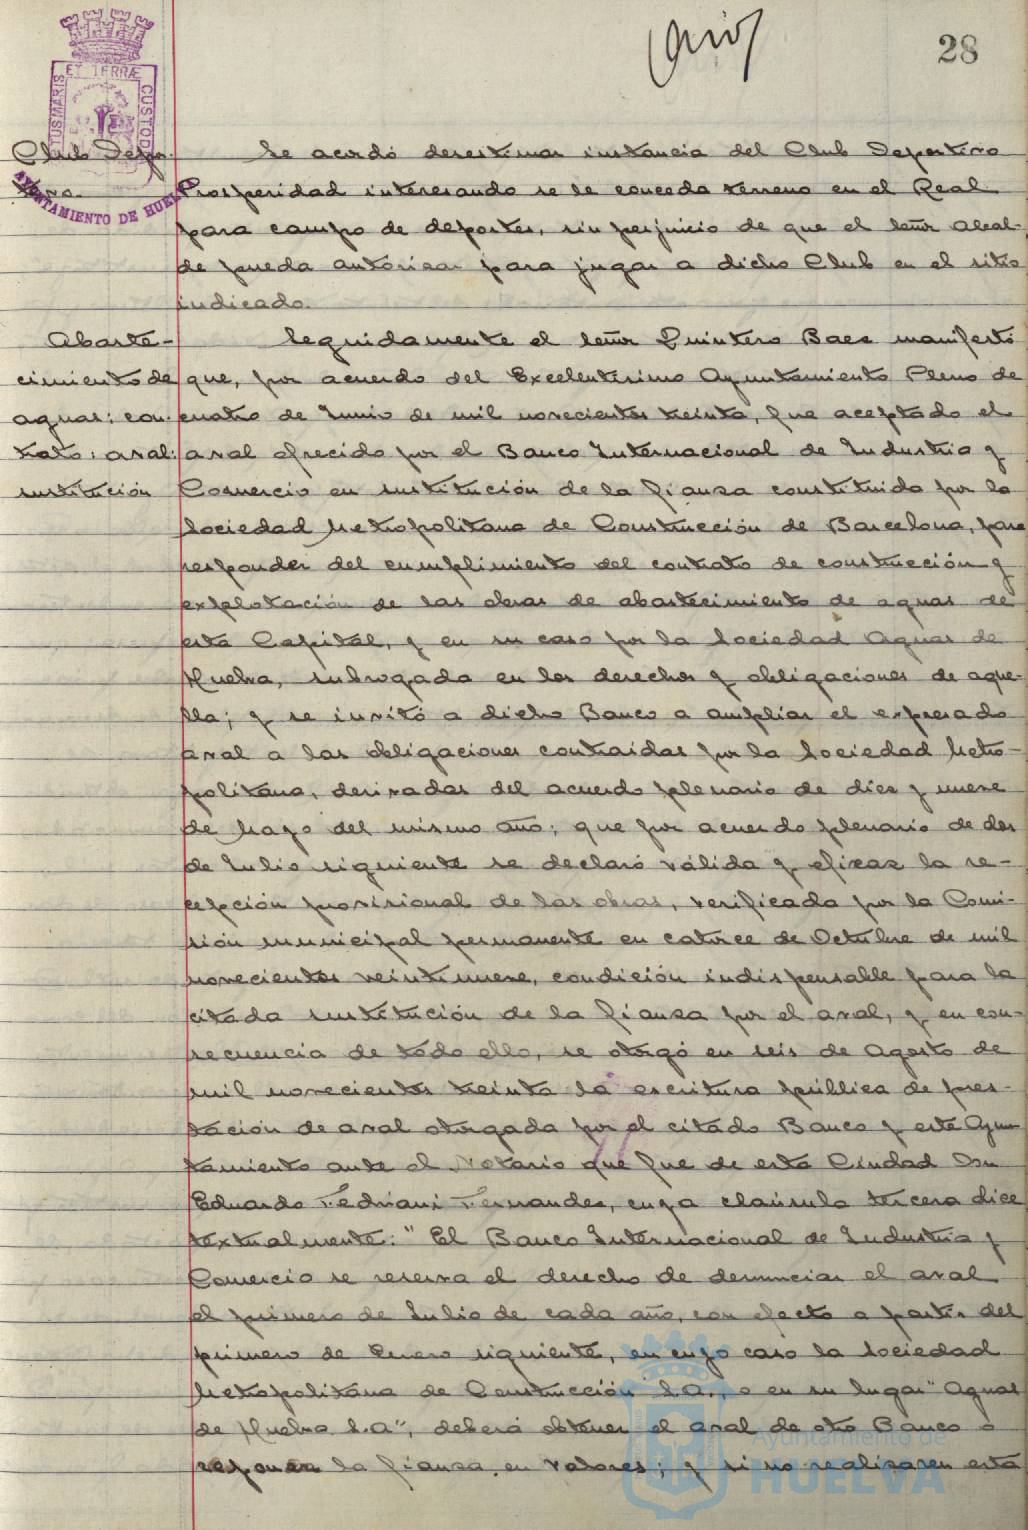 28
PORTUS MARIS ET TERRÆ CUSTODIA
AYUNTAMIENTO DE HUELVA
Club Depor-
tivo.
Se acordó desestimar instancia del Club Deportivo
Prosperidad interesando se le conceda terreno en el Real
para campo de deportes, sin perjuicio de que el Señor Alcal-
de pueda autorizar para jugar a dicho Club en el sitio
indicado.
Abaste-
cimiento de
aguas: con-
trato: aval:
sustitución
Seguidamente el Señor Quintero Baez manifestó
que, por acuerdo del Excelentísimo Ayuntamiento Pleno de
cuatro de Junio de mil novecientos treinta, fue aceptado el
aval ofrecido por el Banco Internacional de Industria y
Comercio en sustitución de la fianza constituida por la
Sociedad Metropolitana de Construcción de Barcelona, para
responder del cumplimiento del contrato de construcción y
explotación de las obras de abastecimiento de aguas de
esta Capital, y en su caso por la Sociedad Aguas de
Huelva, subrogada en los derechos y obligaciones de aque-
lla; y se invitó a dicho Banco a ampliar el expresado
aval a las obligaciones contraídas por la Sociedad Metro-
politana, derivadas del acuerdo plenario de diez y nueve
de Mayo del mismo año; que por acuerdo plenario de dos
de Julio siguiente se declaró válida y eficaz la re-
cepción provisional de las obras, verificada por la Comi-
sión municipal permanente en catorce de Octubre de mil
novecientos veintinueve, condición indispensable para la
citada sustitución de la fianza por el aval, y en con-
secuencia de todo ello, se otorgó en seis de Agosto de
mil novecientos treinta la escritura pública de pres-
tación de aval otorgada por el citado Banco y este Ayun-
tamiento ante el Notario que fue de esta Ciudad Don
Eduardo Fedriani Fernandez, cuya claúsula tercera dice
textualmente: "El Banco Internacional de Industria y
Comercio se reserva el derecho de denunciar el aval
el primero de Julio de cada año, con efecto a partir del
primero de Enero siguiente, en cuyo caso la Sociedad
Metropolitana de Construcción S.A., o en su lugar "Aguas
de Huelva S.A", deberá obtener el aval de otro Banco o
reponer la fianza en valores; y si no realizaren esta
Ayuntamiento de
HUELVA